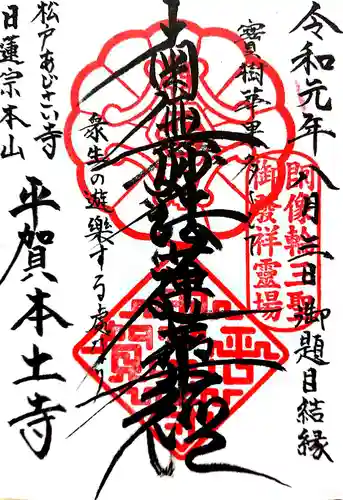 令和元年八月三日 御題目結縁
開像輪三聖
御發祥靈場
寶樹華果多くして
南無妙法蓮華経
衆生の遊樂する處なり
松戸あじさい寺
日蓮宗本山
平賀本土寺